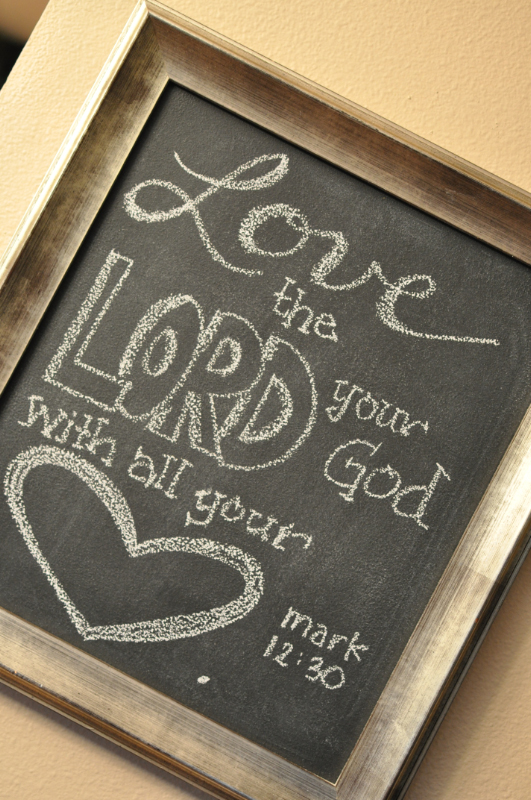 Love
the
LORD your
God
with all your
mark
12:30